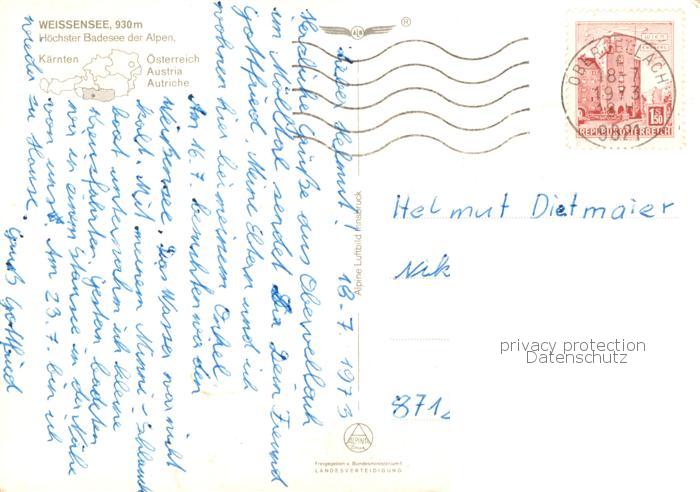 WEISSENSEE, 930m
Höchster Badesee der Alpen,
Kärnten
Österreich
Austria
Autriche
®
OBERVELLACH
18-7
1973
9821
WIEN
1.50
REPUBLIK ÖSTERREICH
Lieber Helmut! 18-7. 1973
Herzliche Grüße aus Obervellach
im Mölltal sendet Dir Dein Freund
Gottfried. Meine Eltern und ich
wohnen hier bei meinem Onkel.
Am 16.7. besuchten wir den
Weißensee. Das Wasser war nicht
kalt. Mit meinem Minni-Schlauch
boot unternahm ich kleine
Kreuzfahrten. Gestern badeten
wir in einem Stausee in der Nähe
von uns. Am 23.7. bin ich
wieder zu Hause.
Gruß Gottfried
Alpine Luftbild Innsbruck
Helmut Dietmaier
Nik
privacy protection
Datenschutz
871
ALPINE
Freigegeben v. Bundesministerium f.
LANDESVERTEIDIGUNG